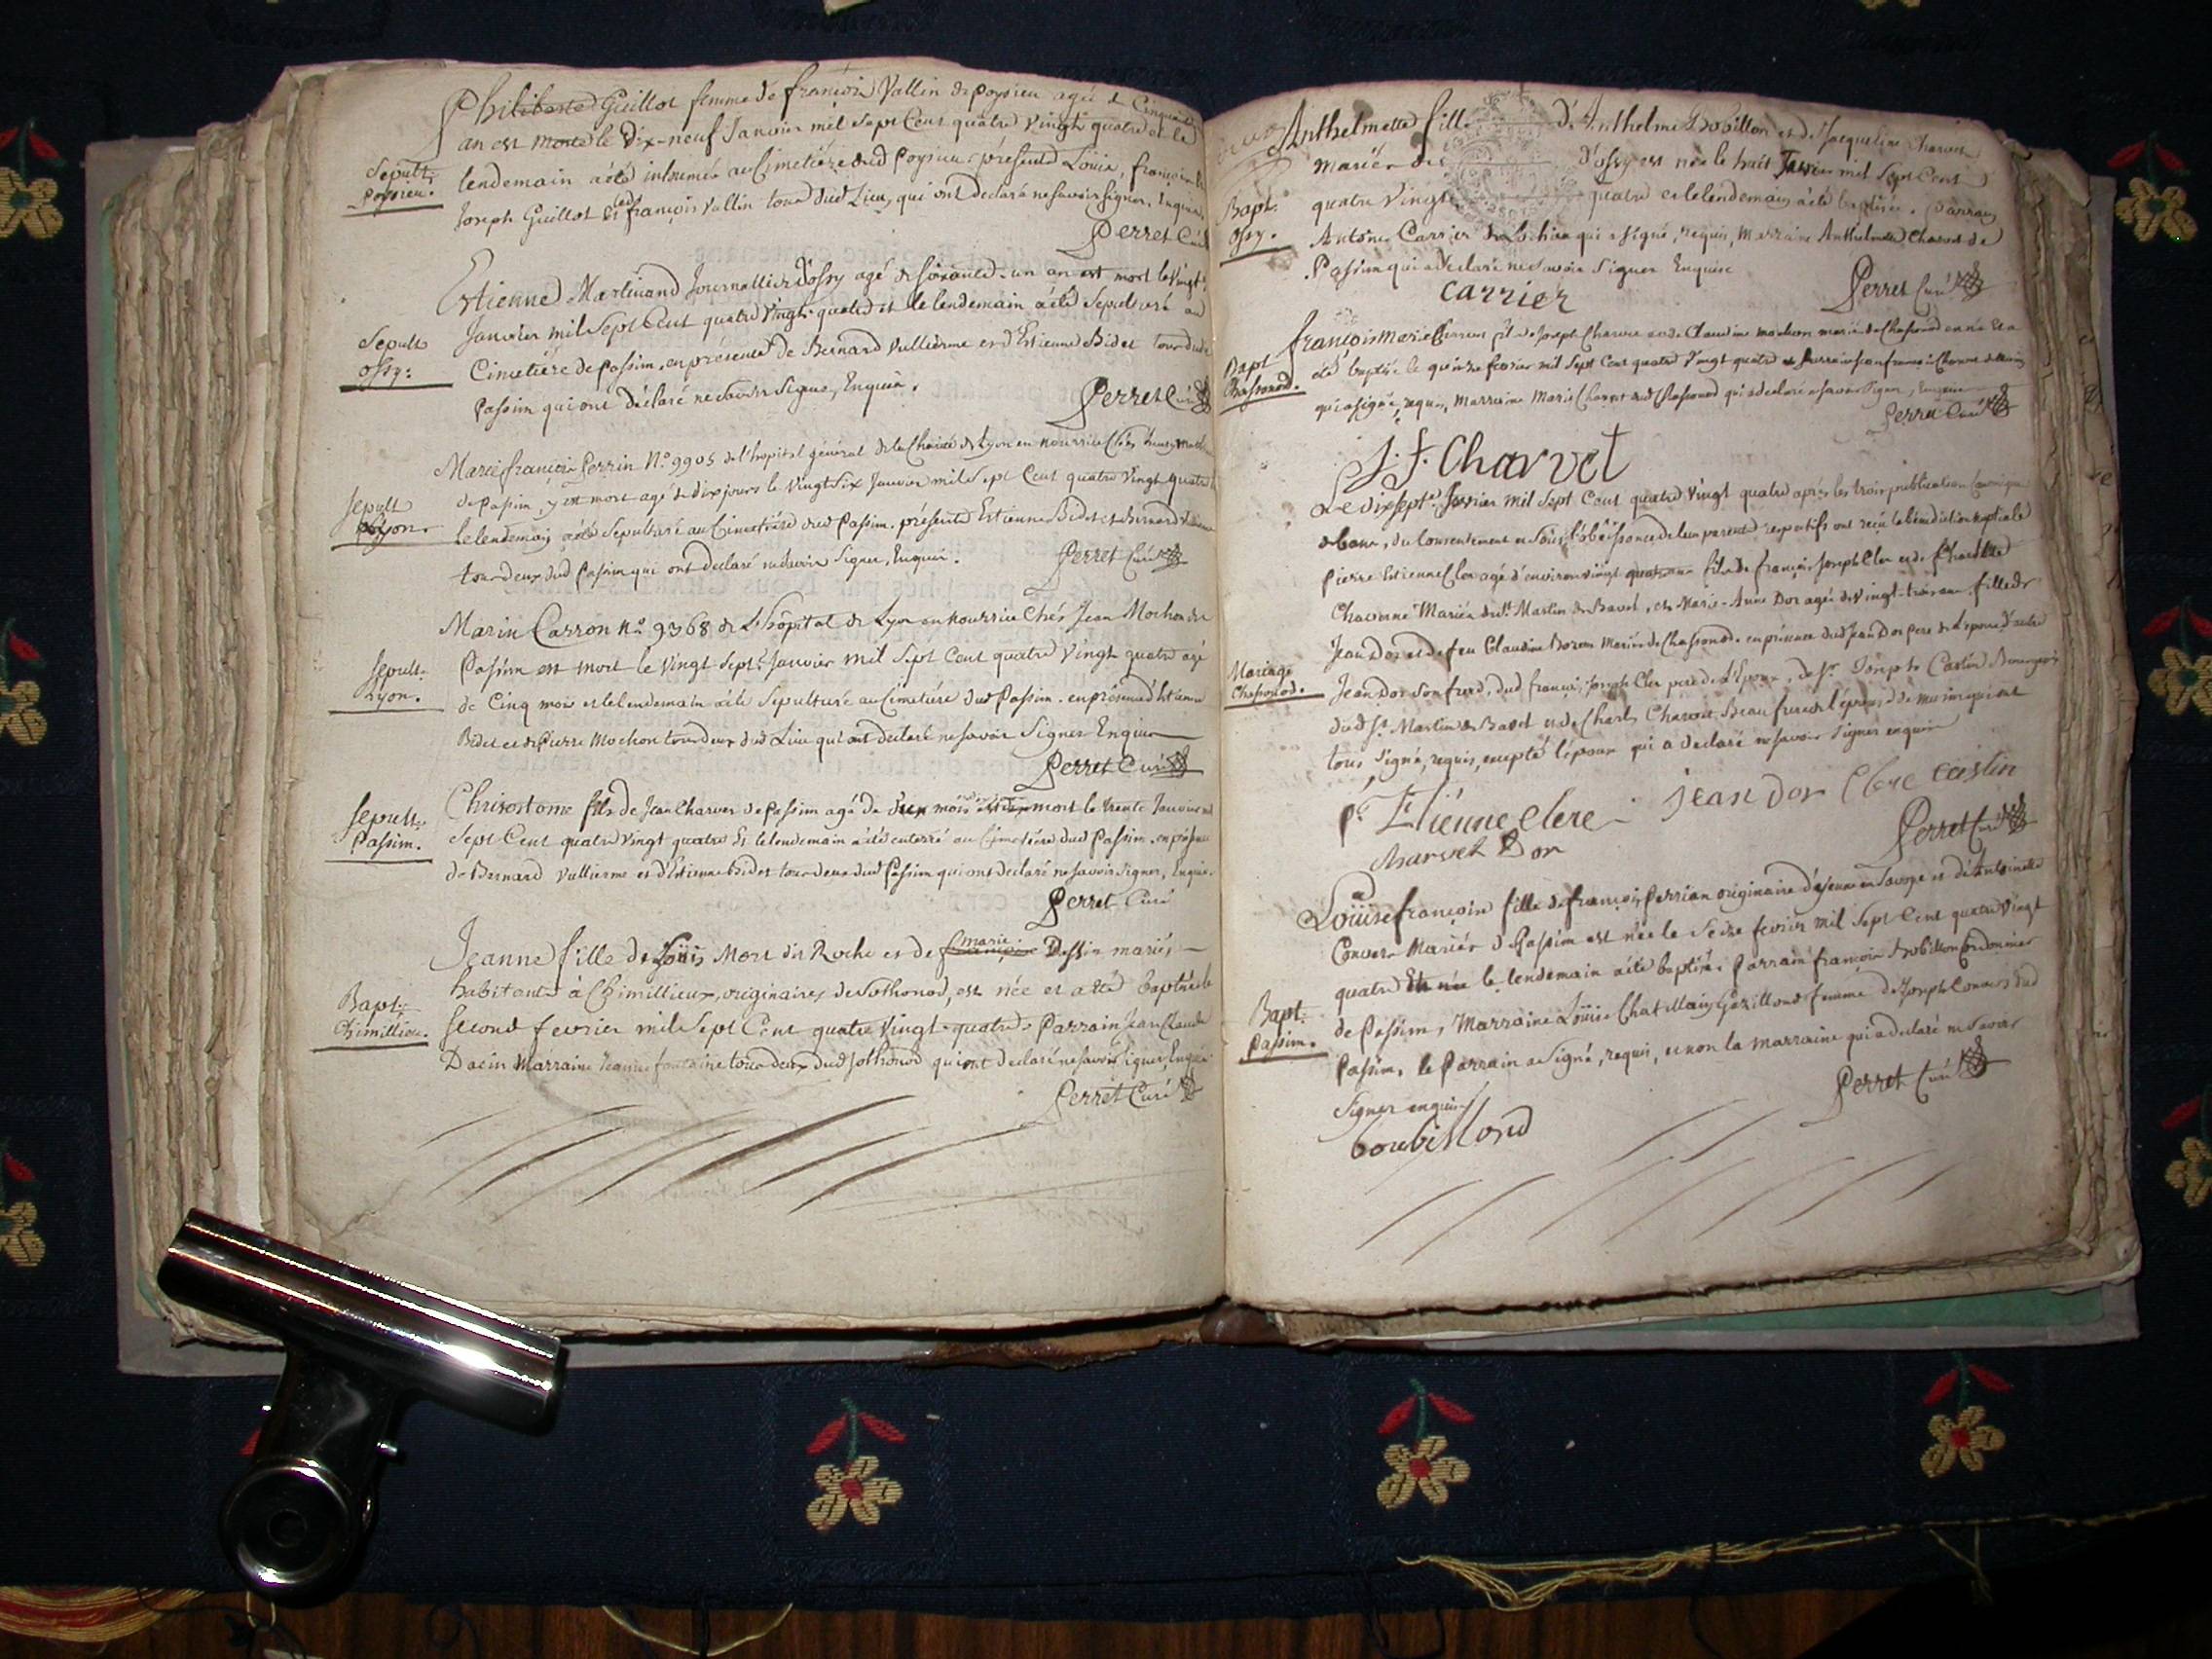 Philiberte Guillot femme de françois Vallin de Poysieu agée de Cinquante
an est morte le Dix-neuf Janvier mil Sept Cent quatre Vingt quatre et le
lendemain a été inhumée au Cimetière dud Poysieu, présents Louis, françois
Sepult.
Poysieu.
Joseph Guillot et led françois Vallin tous dud Lieu, qui ont declaré ne savoir signer, Enquis
Perret Curé
Estienne Martinand Journallier d'ossy agé de soixante-un an est mort le Vingt
Janvier mil Sept Cent quatre Vingt quatre et le lendemain a été Sepulturé au
Sepult
ossy:
Cimetière de Passim, en présence de Bernard Vullierme et d'Estienne Bidet tous dud
Passim qui ont déclaré ne savoir Signer, Enquis.
Perret Curé
Marie françoise Perrin N° 9905 de l'hopital général de la Charité de Lyon en nourrice Chés
de Passim, y est mort agé de dix jours le Vingt Six Janvier mil Sept Cent quatre Vingt quatre
Sepult
Lyon.
le lendemain a été Sepulturé au Cimetière dud Passim. présents Estienne Bidet et Bernard
tous deux dud Passim qui ont declaré ne savoir Signer, Enquis.
Perret Curé
Marin Carron N° 9368 de L'hôpital de Lyon en nourrice Chés Jean Mochon de
Passim est mort le Vingt Sept Janvier mil Sept Cent quatre Vingt quatre agé
Sepult
Lyon.
de Cinq mois et le lendemain a été Sepulturé au Cimetière dud Passim. en présence d'Estienne
Bidet et de Pierre Mochon tous deux dud Lieu qui ont declaré ne savoir Signer Enquis
Perret Curé
Chrisostome fils de Jean Charvet de Passim agé de mois est mort le trente Janvier mil
Sepult.
Passim.
Sept Cent quatre Vingt quatre Et le lendemain a été enterré au Cimetière dud Passim, en présence
de Bernard Vullierme et d'Estienne Bidet tous deux dud Passim qui ont declaré ne savoir Signer, Enquis.
Perret Curé
Jeanne fille de Loüis Mort dit Roche et de françoise marie Dassin mariés
habitants à Chimillieu, originaires de Sothonod, est née et a été baptisée le
Bapt.
Chimillieu.
Second fevrier mil Sept Cent quatre Vingt-quatre. Parrain Jean Claude
Dacin Marraine Jeanne fontaine tous deux dud Sothonod qui ont declaré ne savoir Signer, Enquis
Perret Curé
Anthelmette fille d'Anthelme Bobillon et de Jacqueline Charvet
Mariés d'ossy est née le huit fevrier mil Sept Cent
Bapt.
ossy.
quatre Vingt quatre et le lendemain a été baptisée. Parrain
Antoine Carrier de Lochieu qui a signé, requis, Marraine Anthelmette Charvet de
Passim qui a declaré ne savoir Signer Enquise
Carrier
Perret Curé
françois Marie fils de Joseph Charvet et de Claudine mochon mariés de Chassonod est né Et a
Bapt
Chassonod.
été baptisé le quinze fevrier mil Sept Cent quatre Vingt quatre
qui a signé, requis, Marraine Marie Charvet dud Chassonod qui a declaré ne savoir Signer, Enquise
Perret Curé
J. f. Charvet
Le dixsept fevrier mil Sept Cent quatre Vingt quatre après les trois publications Canoniques
de bans, du Consentement et sous l'obéissance de leurs parents respectifs ont reçu la bénédiction nuptiale
pierre Estienne Cler agé d'environ vingt quatre ans fils de françois Joseph Cler et de Charlotte
Mariés de St. Martin de Bavel, et Marie-Anne Dor agée de vingt-trois ans fille de
Jean Dor et de feu Claudine Mariés de Chassonod. en présence dud Jean Dor pere de l'epouse, d'autre
Mariage
Chassonod.
Jean Dor son frere, dud françois Joseph Cler pere de l'Epoux, de Sr. Joseph Castin Bourgeois
dud St. Martin de Bavel et de Charles Charvet Beau frere de l'épouse qui ont
tous Signé, requis, excepté l'epouse qui a declaré ne savoir Signer enquise
pr. Etienne clere
jean Dor Clere castin
charvet Dor
Perret Curé
Loüise françoise fille de françois Perrian originaire d'yenne en Savoye et d'Antoinette
Convers Mariés de Passim est née le Seize fevrier mil Sept Cent quatre Vingt
quatre Et née le lendemain a été baptisée. Parrain françois Bobillon Cordonnier
Bapt.
Passim.
de Passim, Marraine Loüise Chatillain femme de Joseph Convers dud
Passim, le Parrain a Signé, requis, et non la marraine qui a declaré ne savoir
Signer enquise
Perret Curé
boubillond